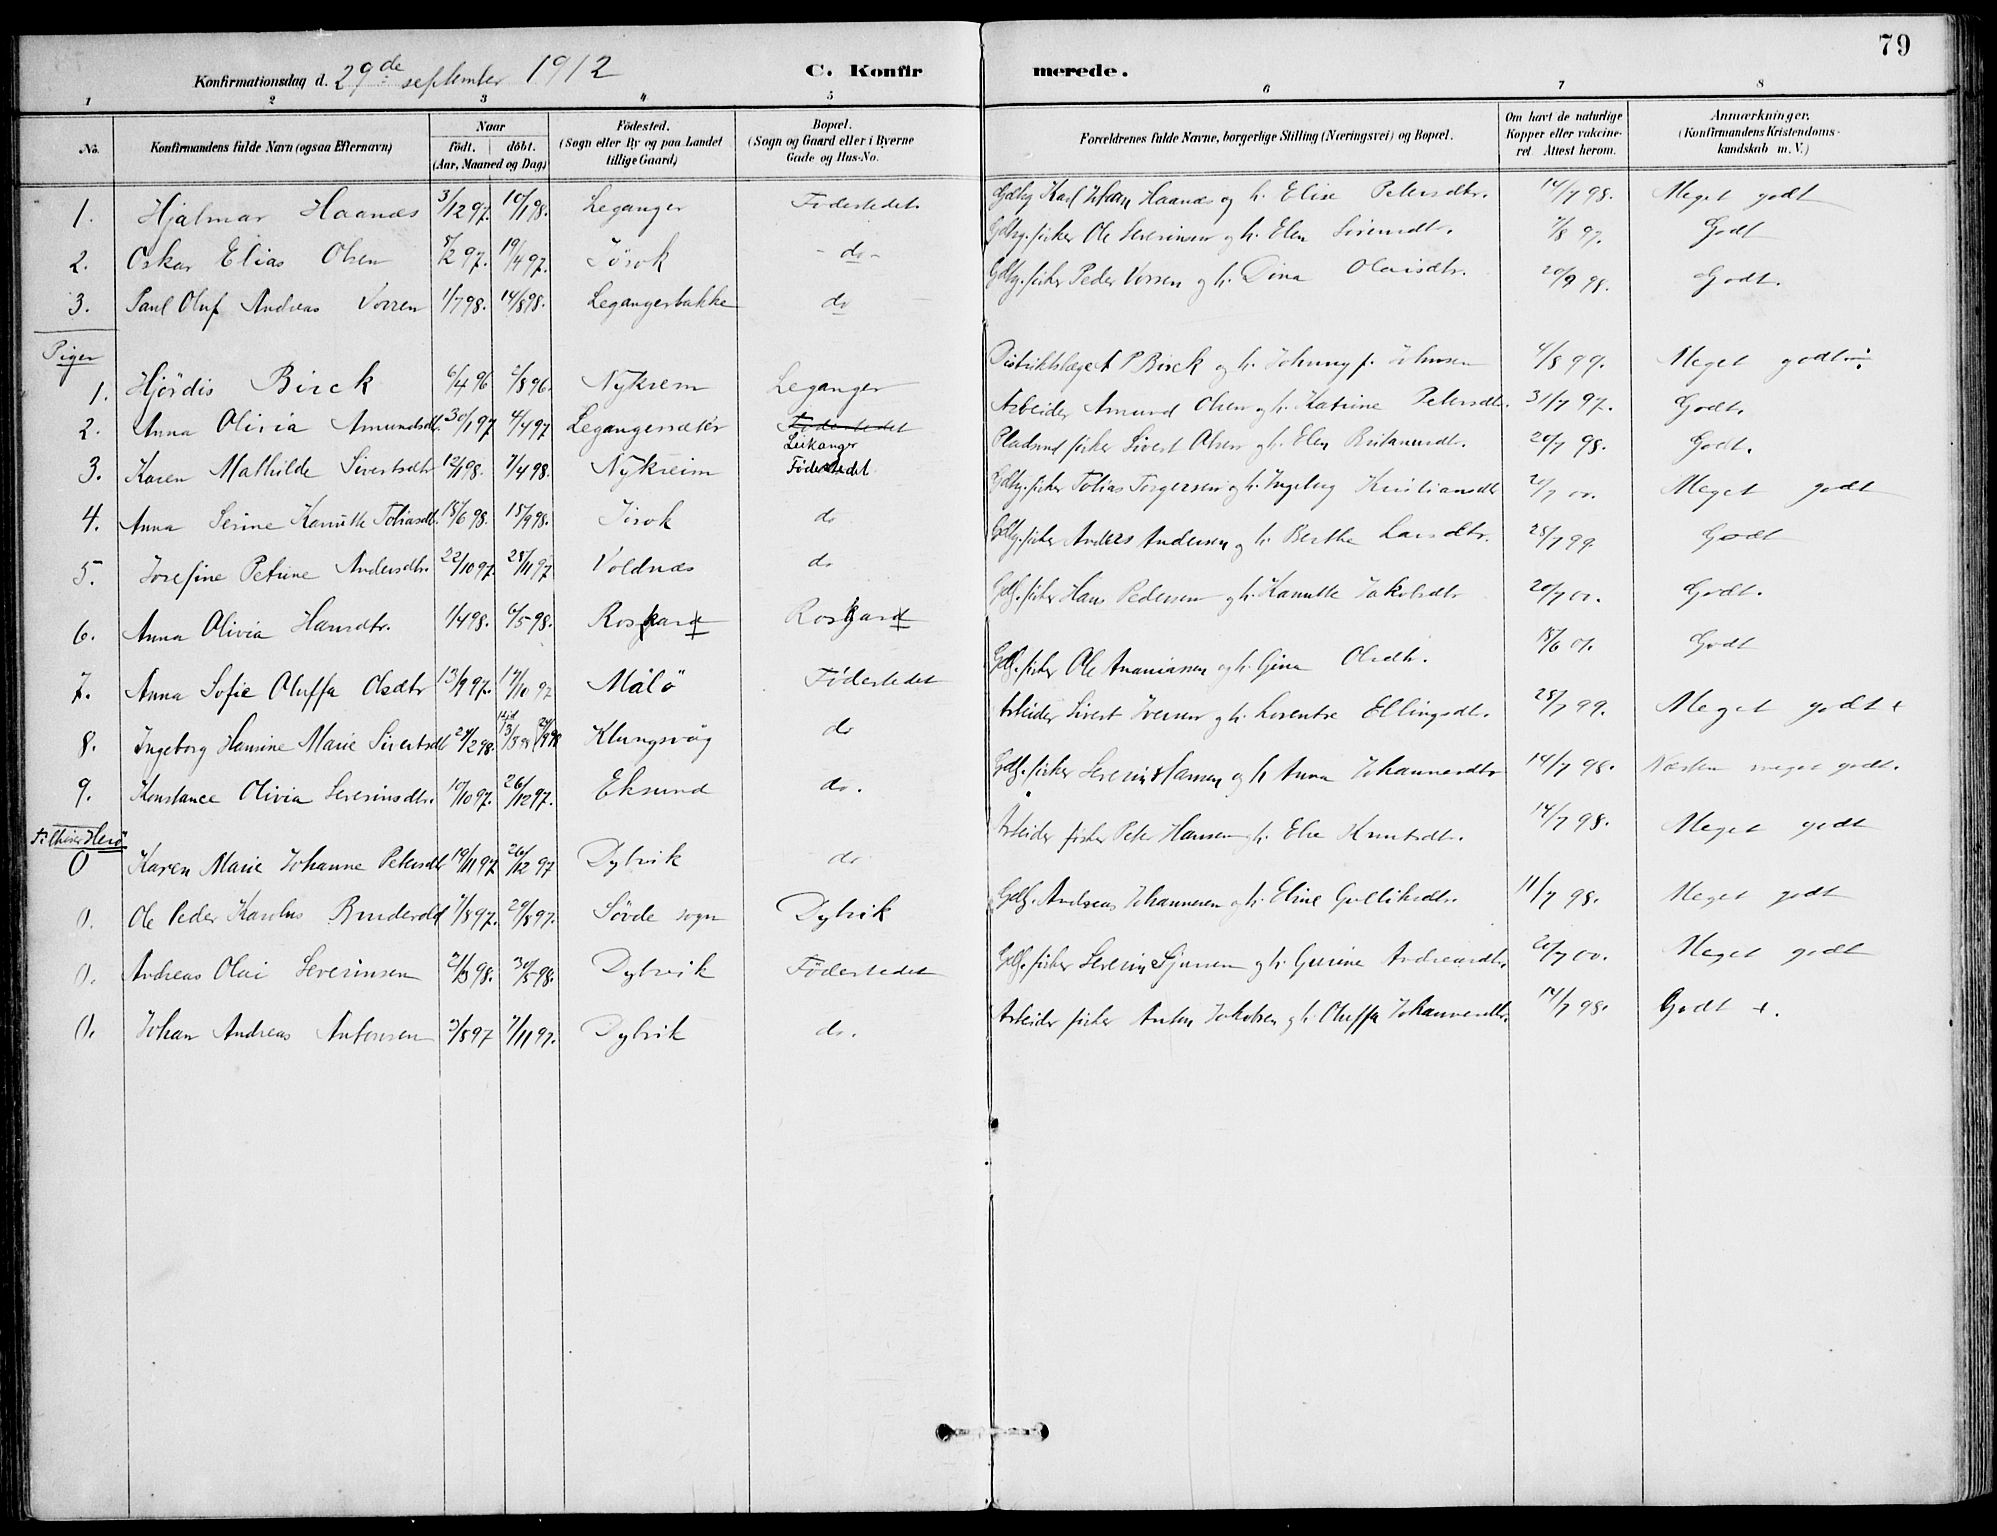 79
Konfirmationsdag d. 29de september 1912 C. Konfirmerede.
1 2 3 4 5 6 7 8
No. Konfirmandens fulde Navn (ogsaa Efternavn) Naar født. døbt. (Aar, Maaned og Dag) Fødested. (Sogn eller By og paa Landet tillige Gaard) Bopæl. (Sogn og Gaard eller i Byerne Gade og Hus-No. Forældrenes fulde Navne, borgerlige Stilling (Næringsvei) og Bopæl. Om havt de naturlige Kopper eller vakcineret. Attest herom. Anmærkninger. (Konfirmandens Kristendomskundskab m. V.)
1. Hjalmar Haanæs 3/12 97. 10/1 98. Leganger Fødestedet. Gdbg Karl Johan Haanæs og h. Elise Petersdtr. 14/7 98. Meget godt
2. Oskar Elias Olsen 5/2 97. 19/4 97. Jøsok - do - Gdbg. fisker Ole Severinsen og h. Elen Sivensdtr. 7/8 97. Godt
3. Paul Oluf Andreas Vorren 1/7 98. 14/8 98. Legangerbakke do Gdbg. fisker Peder Vorren og h. Dina Olaisdtr. 20/9 98. Godt.
Piger
1. Hjørdis Birck 6/4 96 2/8 96. Nykrem Leganger Distriktslæge A P Birck og h. Johanny f. Johnsen 4/8 99. Meget godt
2. Anna Olivia Amundsdtr. 30/1 97 4/4 97 Legangersæter Fødestedet Leikanger Arbeider Amund Olsen og h. Katrine Petersdtr. 31/7 97. Godt.
3. Karen Mathilde Sivertsdtr 12/1 98. 7/4 98. Nykreim Fødestedet Pladsmd fisker Sivert Olsen og h. Elen Britanusdtr. 20/7 98. Godt.
4. Anna Serine Kanutte Tobiasdtr. 18/6 98. 18/9 98. Jøsok do Gdbg. fisker Tobias Torgersen og h. Ingeborg Kristiansdtr 2/7 00. Meget godt
5. Josefine Petrine Andersdtr. 22/10 97. 28/11 97 Voldnæs do Gdbg. fisker Anders Andersen og h. Berthe Larsdtr. 28/7 99 Godt
6. Anna Olivia Hansdtr. 1/4 98. 6/5 98. Rosgard Rosgard Gdb. fisker Hans Pedersen og h. Kanutte Jakobsdtr 20/7 00. Godt.
7. Anna Sofie Oluffa Olsdtr 13/9 97. 17/10 97 Målø Fødestedet Gdb. fisker Ole Ananiassen og h. Gina Olsdtr. 18/6 01. Godt
8. Ingeborg Hansine Marie Sivertsdtr 24/2 98. Klungsvåg do Arbeider Sivert Iversen og h. Lorentse Ellingsdtr. 28/7 99. Meget godt +
9. Konstance Olivia Severinsdtr. 10/10 97. 26/12 97. Eksund do. Gdb. fisker Severin Hansen og h Anna Johannesdtr 14/7 98. Næsten meget godt.
0 Karen Marie Johanne Petersdtr 19/11 97. 26/12 97 Dybvik do Arbeider fisker Peter Hansen og h. Else Knutsdtr. 14/7 98. Meget godt
0. Ole Peder Karolus Brudevold 7/8 97. 29/8 97. Søvde sogn Dybvik Gdb. Andreas Johannesen og h. Eline Gulliksdtr. 11/7 98. Meget godt
0. Andreas Olai Severinsen 2/3 98. 30/5 98. Dybvik Fødestedet Gdb. fisker Severin Sjursen og h. Gurine Andreasdtr. 20/7 00. Meget godt
0. Johan Andreas Antonsen 3/8 97 7/11 97. Dybvik do. Arbeider fisker Anton Jakobsen og h. Oluffa Johannesdtr. 14/7 98. Godt +.